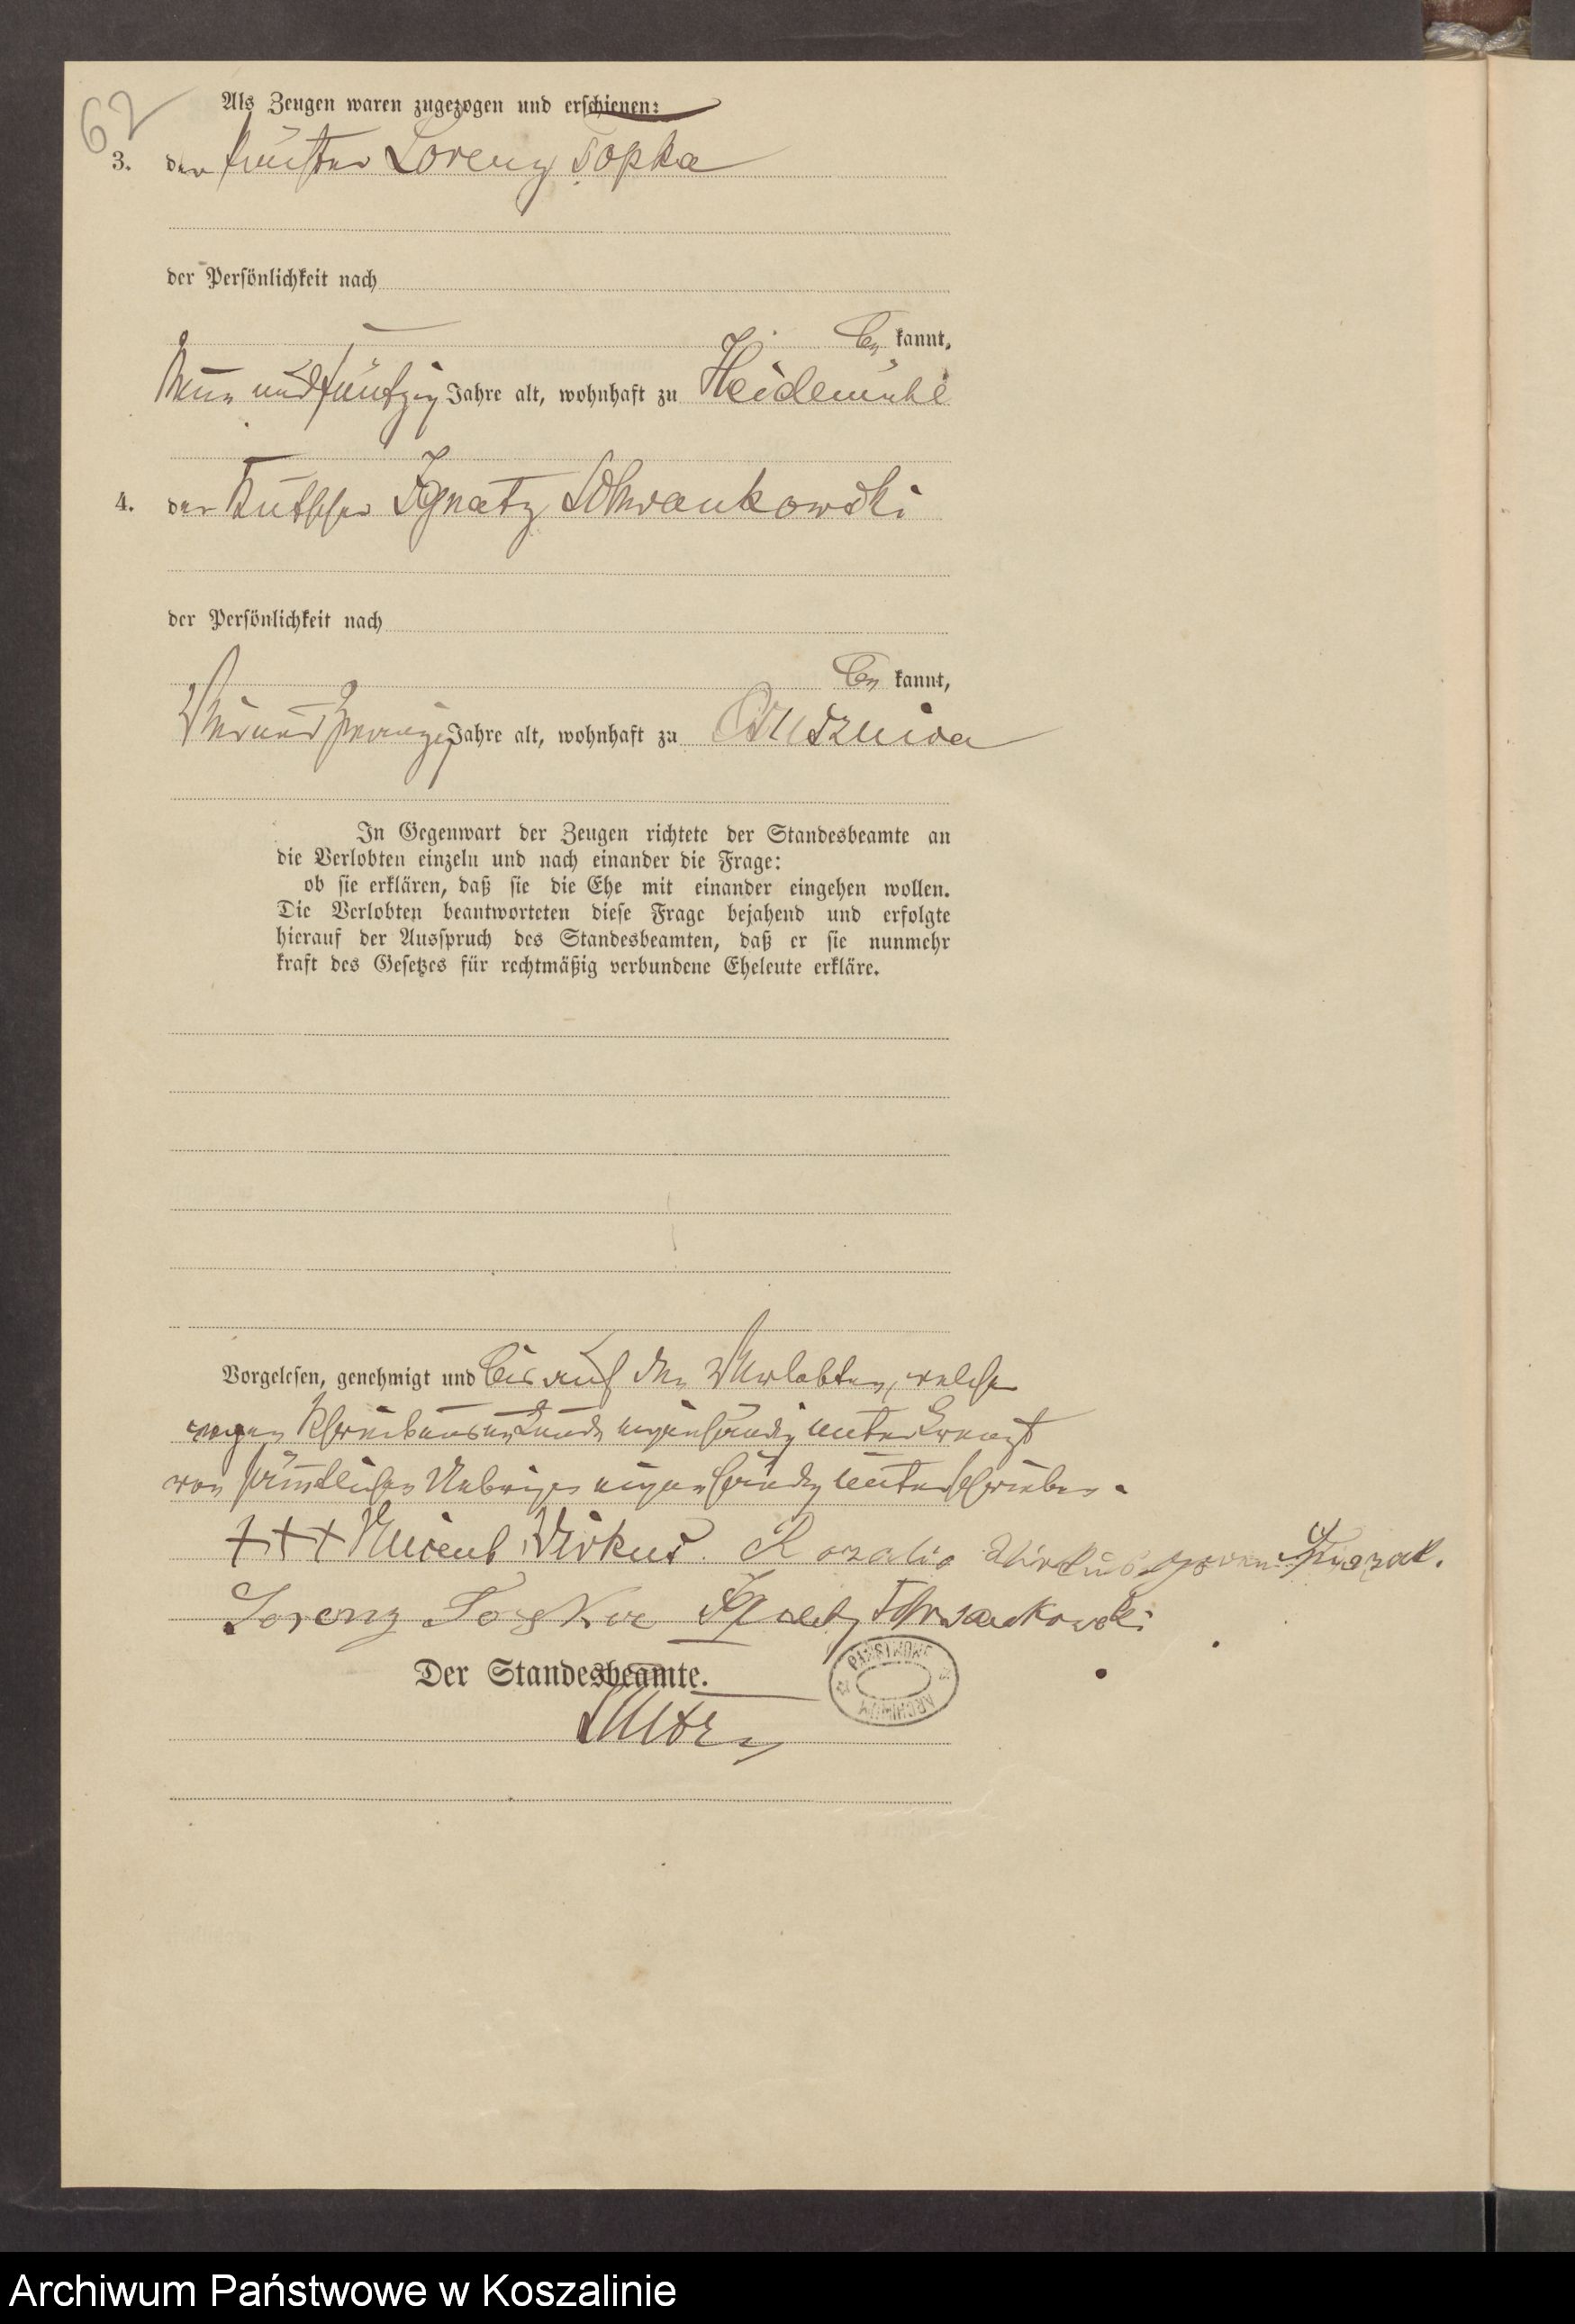 62
Als Zeugen waren zugezogen und erschienen:
3. der Lorenz Topka
der Persönlichkeit nach
be kannt,
neun und fünfzig Jahre alt, wohnhaft zu Heidemühl
4. der Kutscher Ignatz Schwankowski
der Persönlichkeit nach
be kannt,
Vier und zwanzig Jahre alt, wohnhaft zu
In Gegenwart der Zeugen richtete der Standesbeamte an
die Verlobten einzeln und nach einander die Frage:
ob sie erklären, daß sie die Ehe mit einander eingehen wollen.
Die Verlobten beantworteten diese Frage bejahend und erfolgte
hierauf der Ausspruch des Standesbeamten, daß er sie nunmehr
kraft des Gesetzes für rechtmäßig verbundene Eheleute erkläre.
Vorgelesen, genehmigt und bis auf den Verlobten, welcher
wegen Schreibensunkunde eigenhändig unterkreuzt
von sämtlichen Uebrigen eigenhändig unterschrieben.
+++ Vincent Wirkus. Rozalia Wirkus geboren
Lorenz Topka Ignatz Schwankowski
Der Standesbeamte.
PAŃSTWOWE
ARCHIWUM
Archiwum Państwowe w Koszalinie